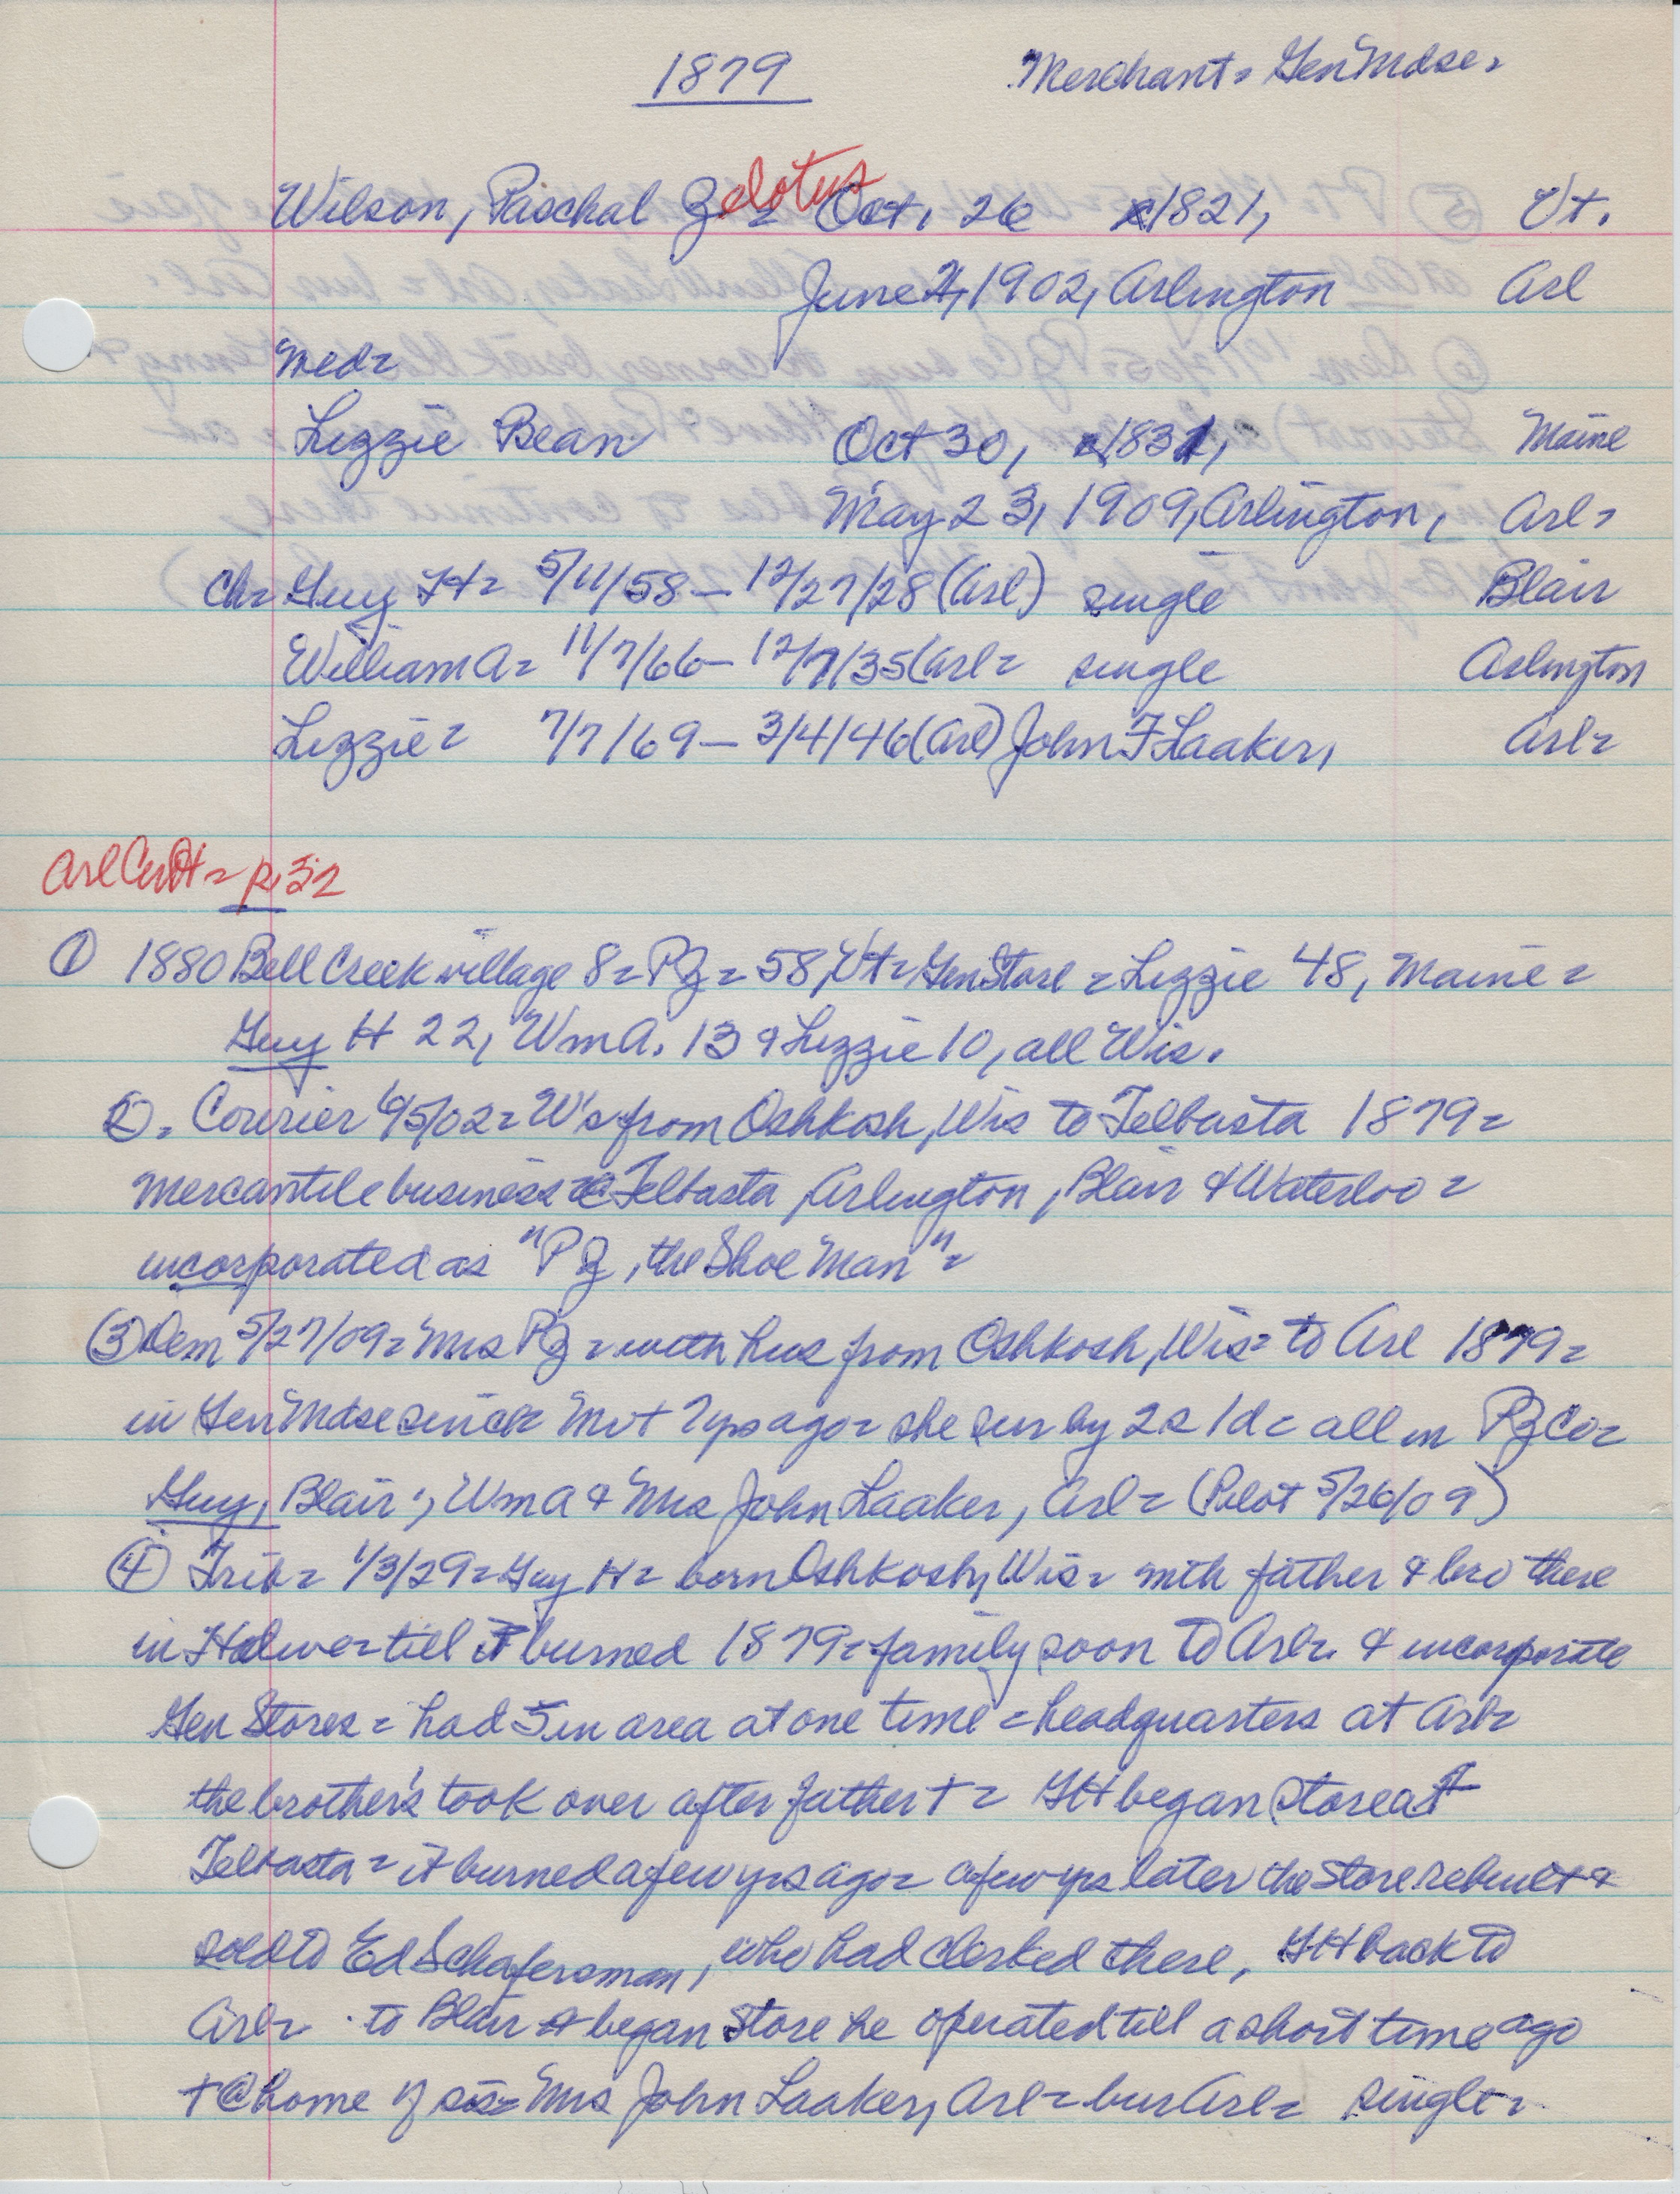 1879 Merchant = Gen Mdse =
Wilson, Paschal Zelotus = Oct. 26 1821, Vt.
June 4, 1902, Arlington Arl
Med =
Lizzie Bean Oct 30, 1831, Maine
May 23, 1909, Arlington, Arl =
Ch = Guy H = 5/11/58 – 12/27/28 (Arl) single Blair
William A = 11/7/66 – 12/7/35 (Arl = single Arlington
Lizzie = 7/7/69 – 3/4/46 (Arl) John F Laaker, Arl =
Arl = p. 52
① 1880 Bell Creek village 8 = PZ = 58, Vt = Gen Store = Lizzie 48, Maine =
Guy H 22, Wm A. 13 & Lizzie 10, all Wis.
②. Courier 6/5/02 = W's from Oshkosh, Wis to Telbasta 1879 =
mercantile business @ Telbasta, Arlington, Blair & Waterloo =
incorporated as "PZ, the Shoe Man" =
③ Dem 5/27/09 = Mrs PZ = with hus from Oshkosh, Wis = to Arl 1879 =
in Gen Mdse since = Mr † 7 yrs ago = she sur by 2s 1d = all in PZ Co =
Guy, Blair; Wm A & Mrs John Laaker, Arl = (Pilot 5/26/09)
④ Trib = 1/3/29 = Guy H = born Oshkosh, Wis = with father & bro there
in Hdwe = till it burned 1879 = family soon to Arl = & incorporate
Gen Stores = had 5 in area at one time = headquarters at Arl =
the brother's took over after father † = GH began store at
Telbasta = it burned a few yrs ago = a few yrs later the store rebuilt &
sold to Ed Schafersman, who had clerked there, GH back to
Arl = to Blair & began store he operated till a short time ago
† @ home of sis = Mrs John Laaker, Arl = bur Arl = single =